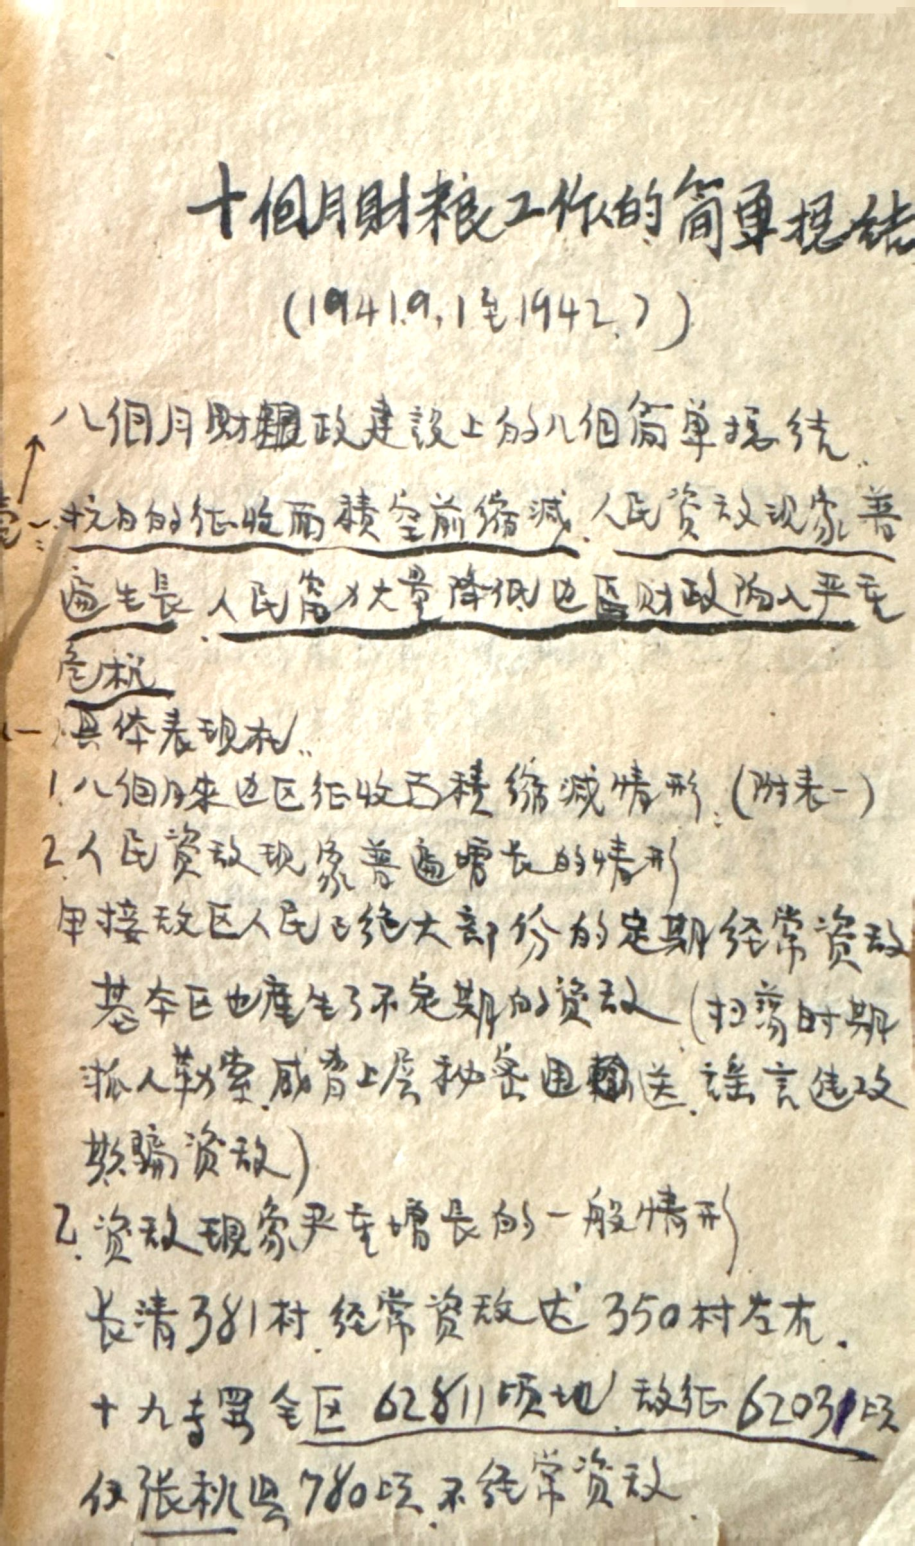 十個月財粮工作的简單總结
(1941.9.1至1942.7)
八個月財糧政建設上的八個简單總结
一:抗日的征收面積空前缩減.人民资敌现象普
遍生長.人民富力大量降低边區财政陷入严重
危机
一.具体表现在:
1.八個月来边区征收面積缩減情形:(附表一)
2.人民资敌现象普遍增长的情形
甲接敌区人民已绝大部份的定期经常资敌
基本区也產生了不定期的资敌(扫蕩时期
抓人勒索.威脅上层秘密運輸送.謠言進攻
欺騙资敌)
乙.资敌现象严重增長的一般情形
长清381村.经常资敌达350村左右.
十九专署全区62811顷地.敌征62031顷
仅张秋县780顷.不经常资敌